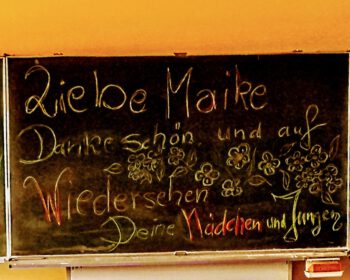 Liebe Maike
Danke schön und auf
Wiedersehen
Deine Mädchen und Jungen